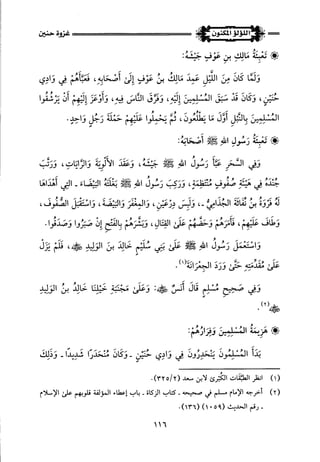 اللؤلؤ المكنون
غزوة حنين
* تَعْبِئَةُ مَالِكِ بنِ عَوْفٍ جَيْشَهُ:
وَلَمَّا كَانَ مِنَ اللَّيْلِ عَمِدَ مَالِكُ بنُ عَوْفٍ إِلَى أَصْحَابِهِ، فَعَبَّأَهُمْ فِي وَادِي
حُنَيْنٍ، وَكَانَ قَدْ سَبَقَ المُسْلِمِينَ إِلَيْهِ، وَفَرَّقَ النَّاسَ فِيهِ، وَأَوْعَزَ إِلَيْهِمْ أَنْ يَرْشُقُوا
المُسْلِمِينَ بِالنَّبْلِ أَوَّلَ مَا يَطْلُعُونَ، ثُمَّ يَحْمِلُوا عَلَيْهِمْ حَمْلَةَ رَجُلٍ وَاحِدٍ.
* تَعْبِئَةُ رَسُولِ اللهِ ﷺ أَصْحَابَهُ:
وَفِي السَّحَرِ عَبَّأَ رَسُولُ اللهِ ﷺ جَيْشَهُ، وَعَقَدَ الأَلْوِيَةَ وَالرَّايَاتِ، وَرَتَّبَ
جُنْدَهُ فِي هَيْئَةِ صُفُوفٍ مُنْتَظِمَةٍ، وَرَكِبَ رَسُولُ اللهِ ﷺ بَغْلَتَهُ البَيْضَاءَ - الَّتِي أَهْدَاهَا
لَهُ فَرْوَةُ بنُ نُفَاثَةَ الجُذَامِيُّ -، وَلَبِسَ دِرْعَيْنِ، وَالمِغْفَرَ وَالبَيْضَةَ، وَاسْتَقْبَلَ الصُّفُوفَ،
وَطَافَ عَلَيْهِمْ، فَأَمَرَهُمْ وَحَضَّهُمْ عَلَى القِتَالِ، وَبَشَّرَهُمْ بِالفَتْحِ إِنْ صَبَرُوا وَصَدَقُوا.
وَاسْتَعْمَلَ رَسُولُ اللهِ ﷺ عَلَى بَنِي سُلَيْمٍ خَالِدَ بنَ الوَلِيدِ ﵁، فَلَمْ يَزَلْ
عَلَى مُقَدِّمَتِهِ حَتَّى وَرَدَ الجِعْرَانَةَ(١).
وَفِي صَحِيحِ مُسْلِمٍ قَالَ أَنَسٌ ﵁: وَعَلَى مُجَنِّبَةِ خَيْلِنَا خَالِدُ بنُ الوَلِيدِ
﵁(٢).
* هَزِيمَةُ المُسْلِمِينَ وَفِرَارُهُمْ:
بَدَأَ المُسْلِمُونَ يَنْحَدِرُونَ فِي وَادِي حُنَيْنٍ - وَكَانَ مُنْحَدَرًا شَدِيدًا - وَذَلِكَ
(١) انظر الطَّبَقَات الكُبْرى لابن سعد (٣٢٥/٢).
(٢) أخرجه الإمام مسلم في صحيحه - كتاب الزكاة - باب إعطاء المؤلفة قلوبهم على الإسلام
- رقم الحديث (١٠٥٩) (١٣٦).
١١٦